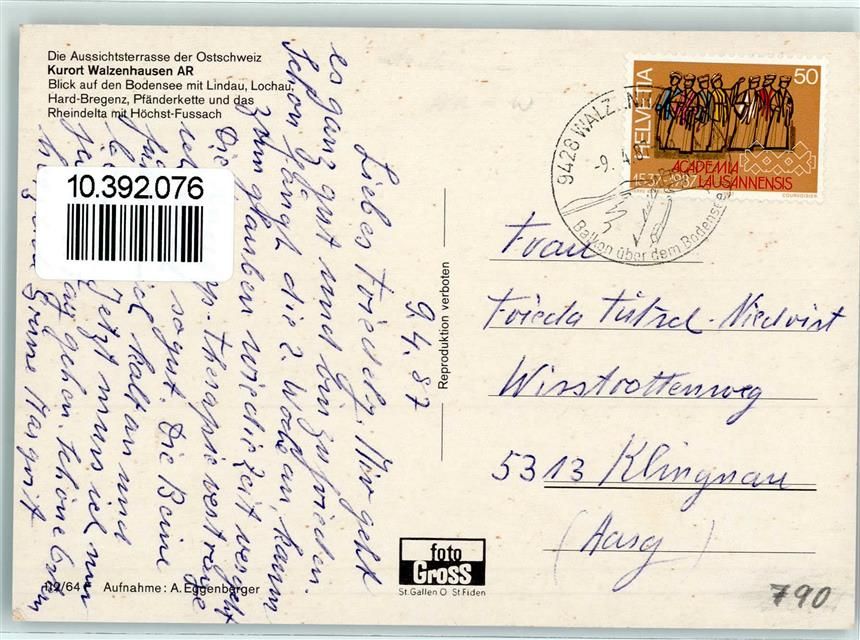 Die Aussichtsterrasse der Ostschweiz
Kurort Walzenhausen AR
Blick auf den Bodensee mit Lindau, Lochau,
Hard-Bregenz, Pfänderkette und das
Rheindelta mit Höchst-Fussach
10.392.076
9.4.87
Liebes Friedely. Mir geht
es ganz gut und bin zufrieden.
Schon fängt die 2. Woche an, kaum
zum glauben wie die Zeit vergeht
Die Therapie vertrage
sogut. Die Beine
kalt an und
Jetzt muss ich nun
gehen. Schöne Ostern
Grüsse Margrit
112/64 Aufnahme: A. Eggenberger
Reproduktion verboten
foto
GROSS
St.Gallen O St Fiden
HELVETIA
50
ACADEMIA
1537-1987 LAUSANNENSIS
COURVOISIER
9428 WALZ
-9. 4. 8
Balkon über dem Bodensee
Frau
Frieda
Wisstrottenweg
5313 Klingnau
(Aarg)
790